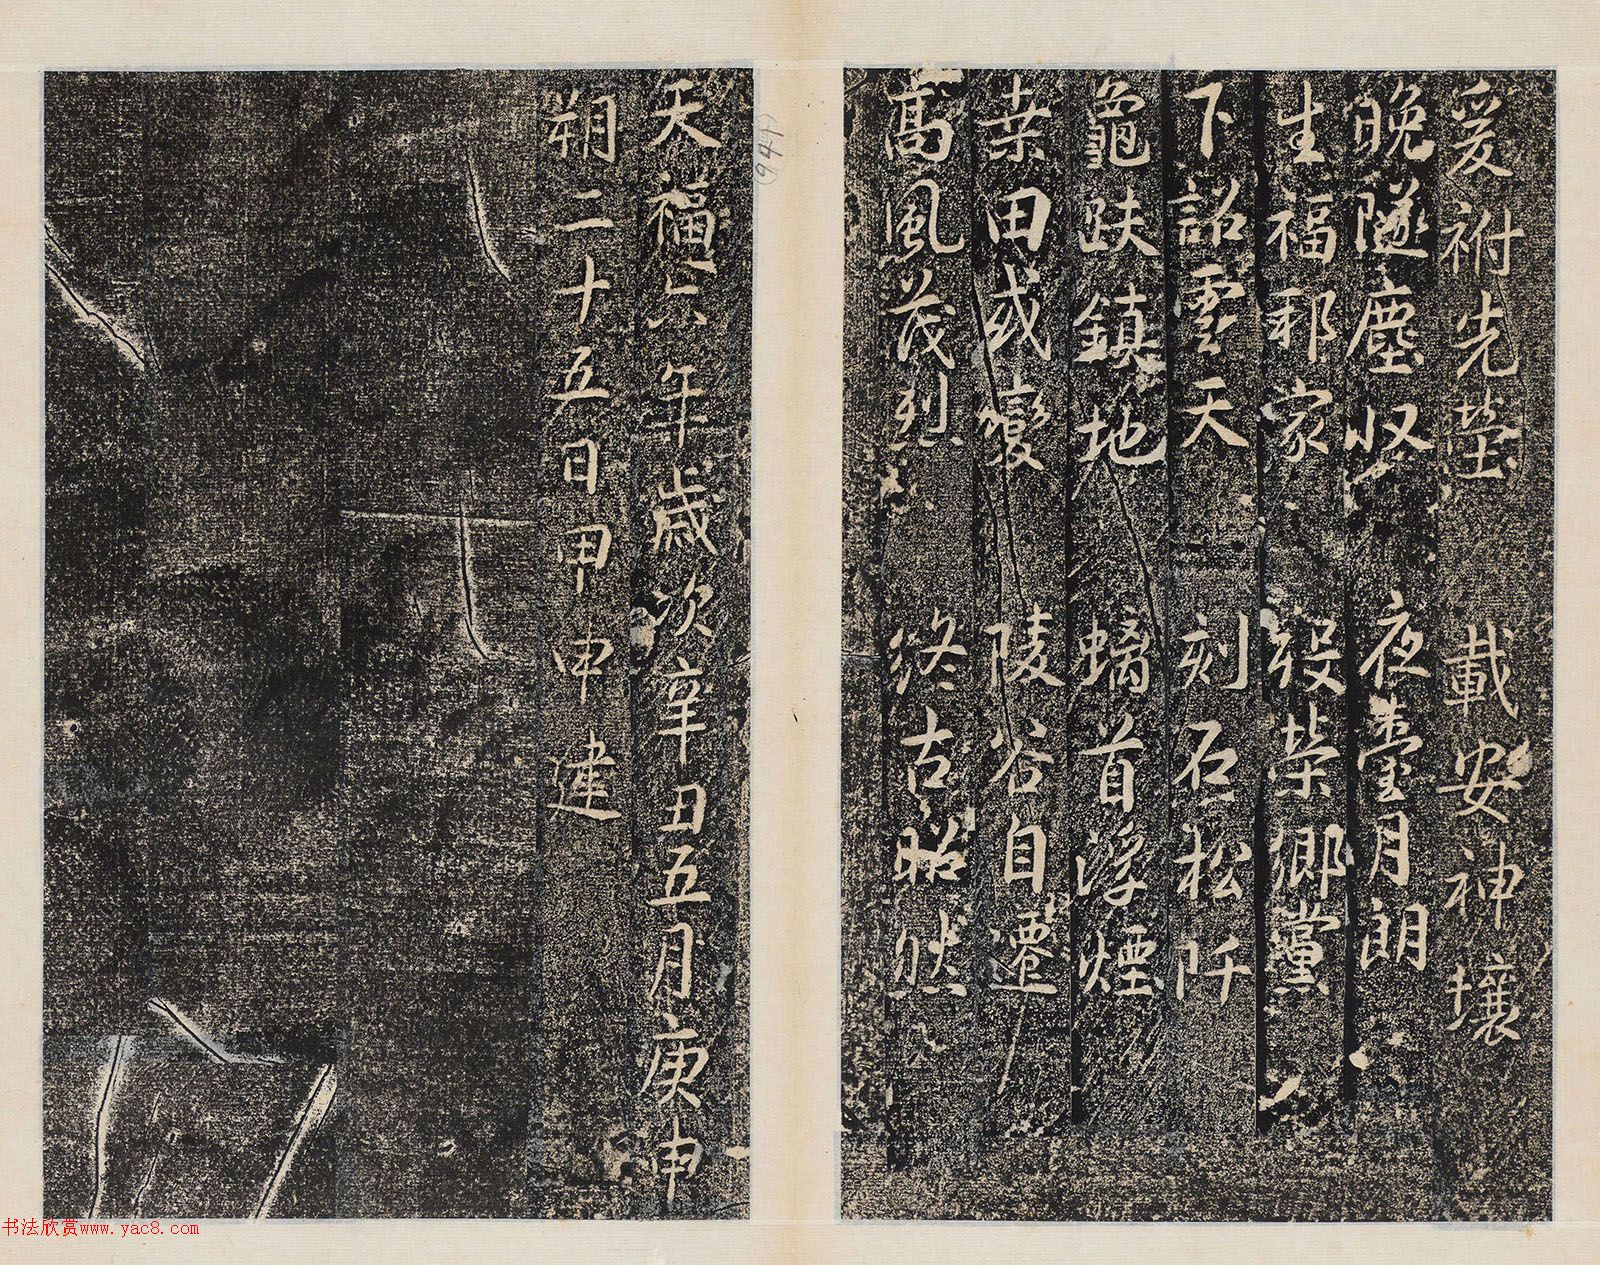 爰祔先塋 載安神壤
晚隧塵収 夜臺月朗
生福邦家 歿榮鄉黨
下詔雲天 刻石松阡
龜趺鎮地 螭首浮煙
桒田或變 陵谷自遷
高風茂烈 終古昭然
天福六年歲次辛丑五月庚申
朔二十五日甲申建
(941)
书法欣赏www.yac8.com